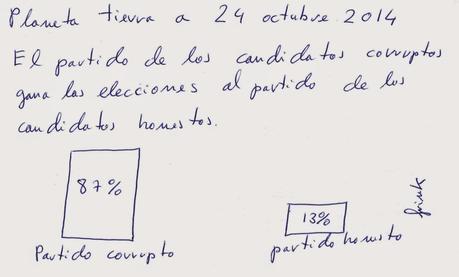 Planeta tierra a 24 octubre 2014
El partido de los candidatos corruptos
gana las elecciones al partido de los
candidatos honestos.
87%
13%
Partido corrupto
partido honesto